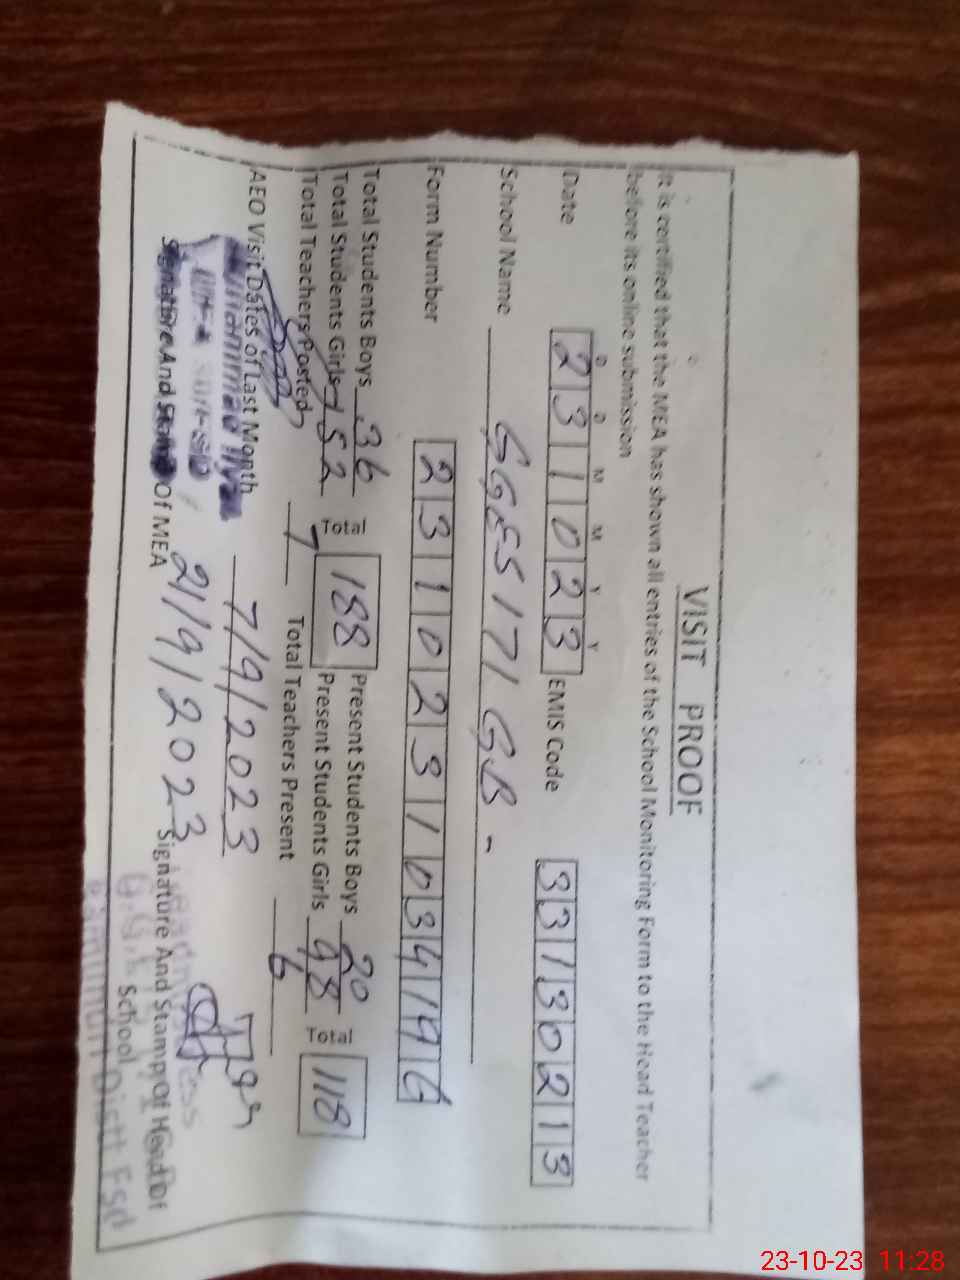 VISIT PROOF
It is certified that the MEA has shown all entries of the School Monitoring Form to the Head Teacher
before its online submission
D D M M Y Y
Date 231023 EMIS Code 33130213
School Name GGES 171 GB -
Form Number 2310231034196
Total Students Boys 36 Total 188 Present Students Boys 20 Total 118
Total Students Girls 152 Present Students Girls 98
Total Teachers Posted 7 Total Teachers Present 6
AEO Visit Dates of Last Month 7/9/2023
21/9/2023
Signature And Stamp Of MEA Signature And Stamp Of Head Of
School Distt Fsd
23-10-23 11:28